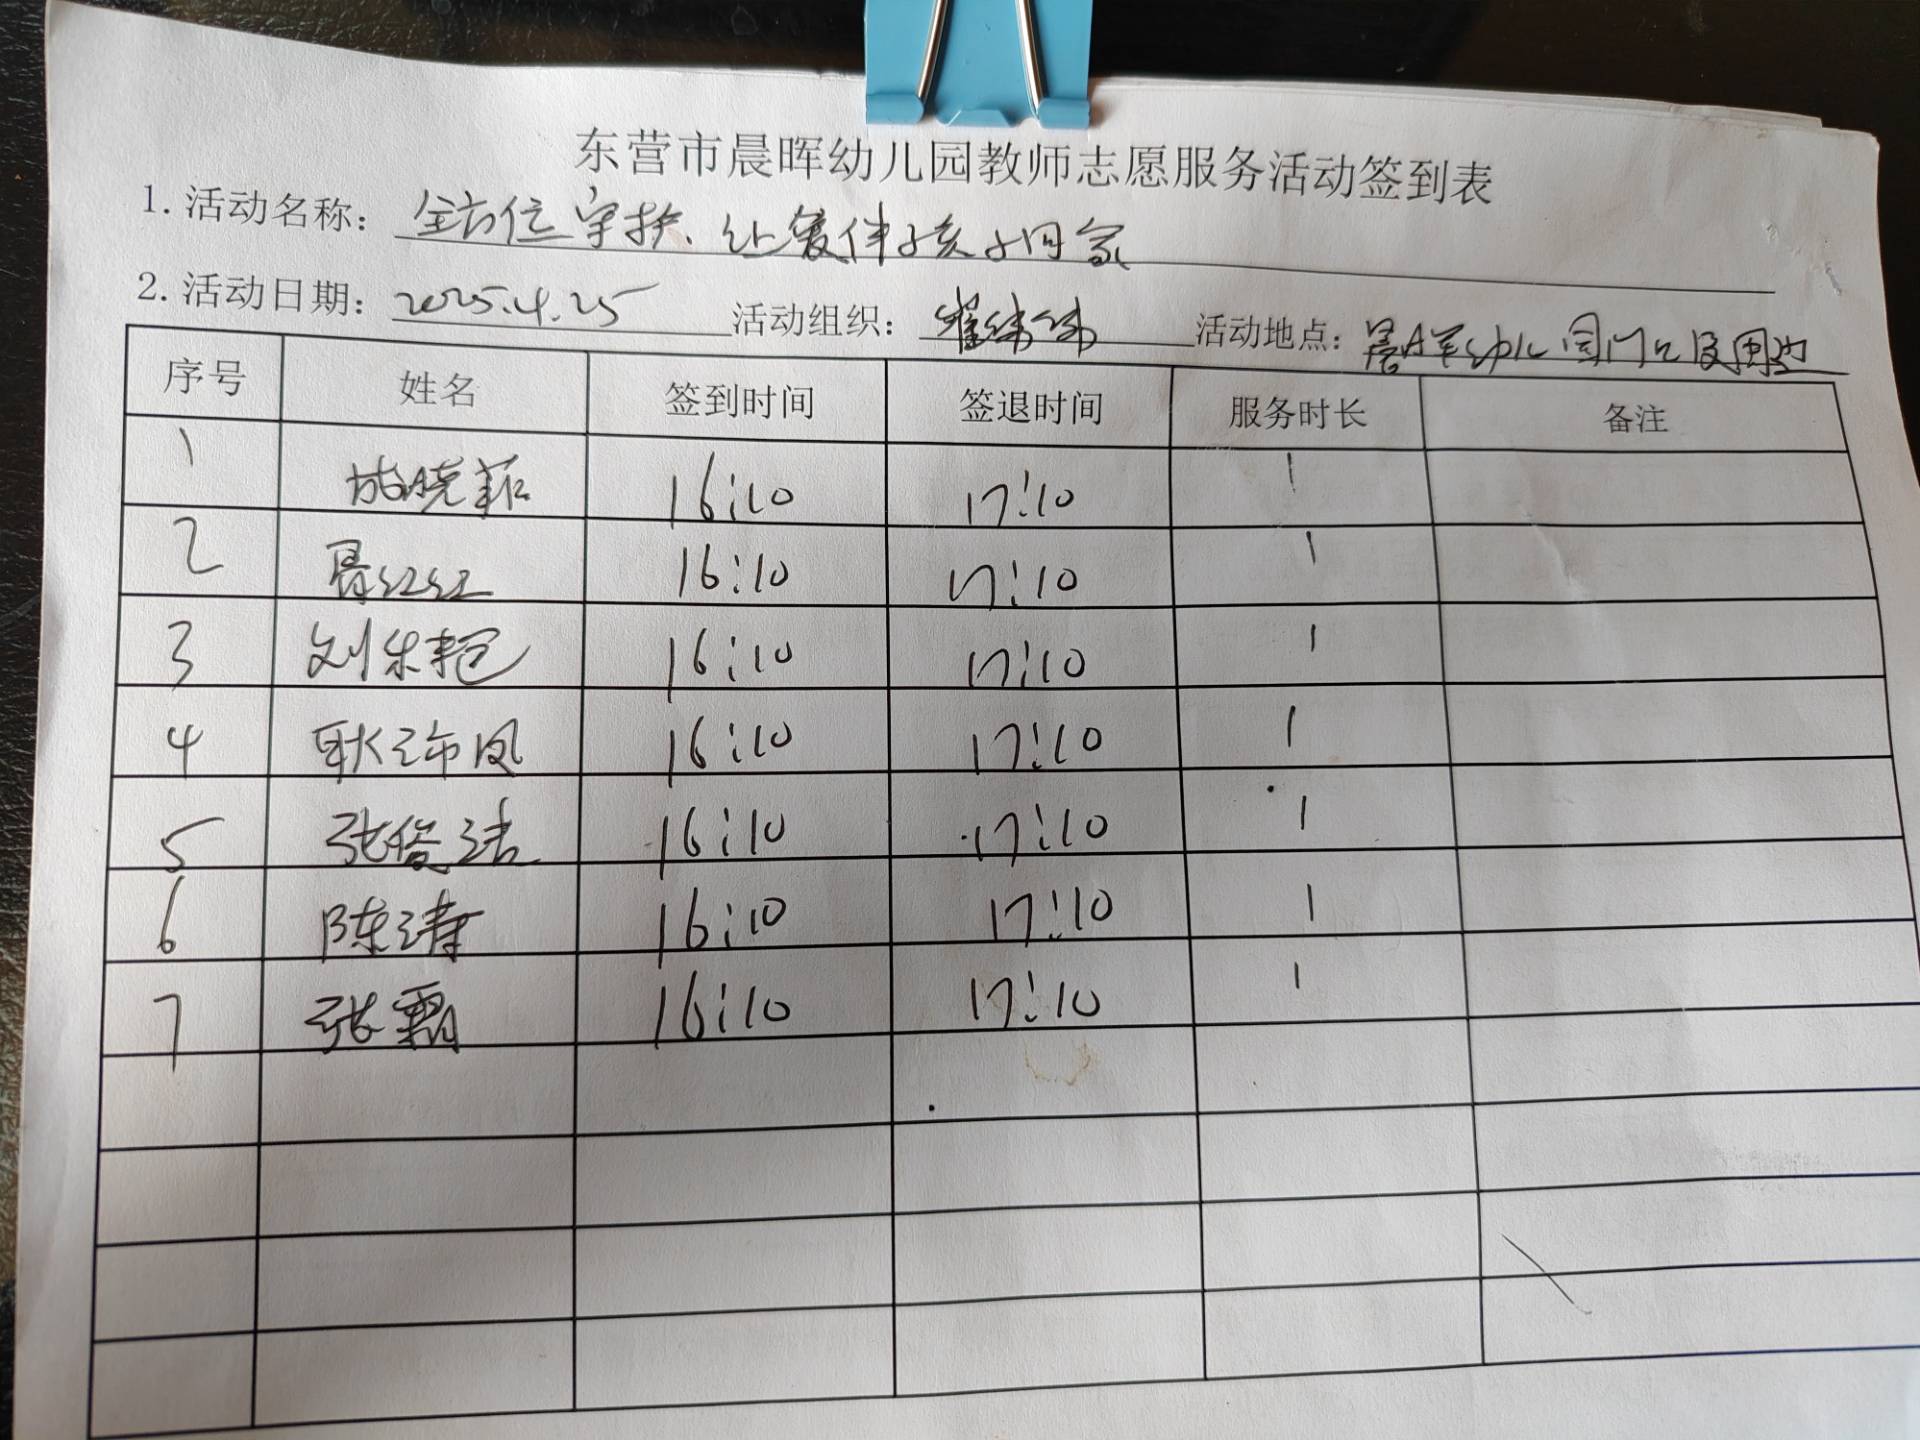 东营市晨晖幼儿园教师志愿服务活动签到表
1. 活动名称： 全方位守护、让爱伴孩子回家
2. 活动日期： 2025.4.25 活动组织： 崔纬纬 活动地点： 晨晖幼儿园门口及周边
序号 姓名 签到时间 签退时间 服务时长 备注
1 晓菲 16:10 17:10 1
2 红红 16:10 17:10 1
3 刘 16:10 17:10 1
4 耿 凤 16:10 17:10 1
5 张俊洁 16:10 17:10 1
6 陈涛 16:10 17:10 1
7 张霸 16:10 17:10 1